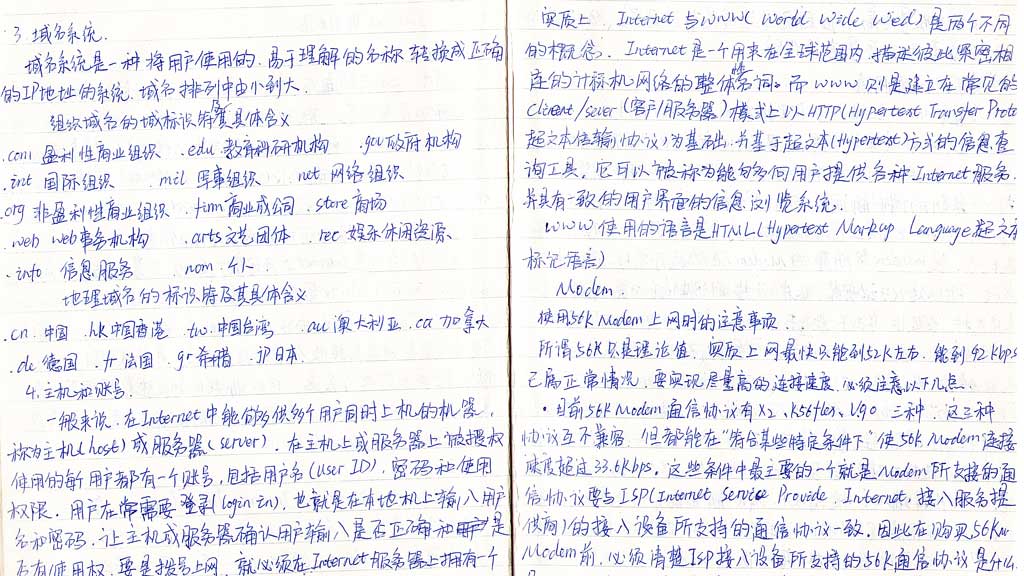 3. 域名系统.
域名系统是一种将用户使用的、易于理解的名称转换成正确
的IP地址的系统. 域名排列中由小到大.
组织域名的域标识符及其具体含义
.com 盈利性商业组织 .edu 教育科研机构 .gov政府机构
.int 国际组织 .mil 军事组织 .net 网络组织
.org 非盈利性商业组织 .firm商业或公司 .store商场
.web web事务机构 .arts文艺团体 .rec 娱乐休闲资源、
.info 信息服务 .nom 个人.
地理域名的标识符及其具体含义
.cn 中国 .hk中国香港 .tw.中国台湾 .au 澳大利亚 .ca 加拿大
.de 德国 .fr 法国 .gr希腊 .jp日本.
4.主机和账号.
一般来说, 在Internet中能够多供多个用户同时上机的机器,
称为主机(host)或服务器(server). 在主机上或服务器上被授权
使用的每个用户都有一个账号, 包括用户名(User ID), 密码和使用
权限. 用户在常需要登录(login in), 也就是在本地机上输入用户
名和密码, 让主机或服务器确认用户输入是否正确和是
否有使用权. 要是拨号上网, 就必须在Internet服务器上拥有一个
实质上, Internet 与WWW( World Wide Wed)是两个不同
的概念. Internet是一个用来在全球范围内, 描述彼此紧密相
连的计标机网络的整体名词。而WWW则是建立在常见的
Client/sever (客户/服务器)模式上以HTTP(Hypertext Transfer Proto
超文本传输协议)为基础, 并基于超文本(Hypertext)方式的信息查
询工具, 它可以被称为能够多向用户提供各种Internet服务.
并具有一致的用户界面的信息浏览系统.
WWW使用的语言是HTML(Hypertext Markup Language超文本
标记语言)
Modem.
使用56K Modem上网时的注意事项.
所谓56K只是理论值, 实质上网最快只能到52K左右, 能到42Kbps
已属正常情况, 要实现尽量高的连接速度, 必须注意以下几点.
· 目前56K Modem通信协议有X2、K56flex、V90 三种, 这三种
协议互不兼容, 但都能在“符合某些特定条件下”使56K Modem连接
速度超过33.6Kbps。这些条件中最主要的一个就是Modem所支援的通
信协议要与ISP(Internet Service Provide, Internet, 接入服务提
供商)的接入设备所支持的通信协议一致. 因此在购买56K
Modem前, 必须清楚ISP接入设备所支持的56K通信协议是什么